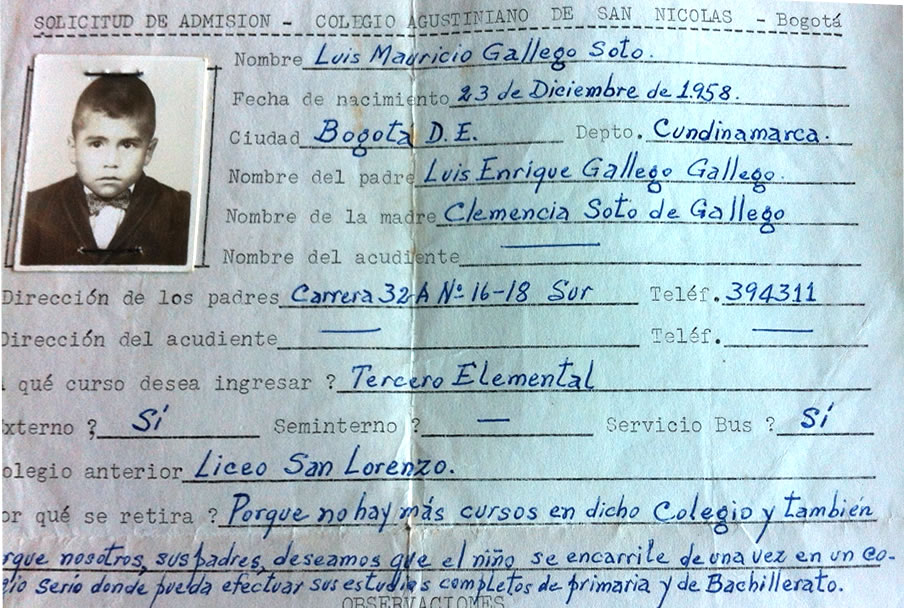 SOLICITUD DE ADMISION - COLEGIO AGUSTINIANO DE SAN NICOLAS - Bogotá
Nombre Luis Mauricio Gallego Soto.
Fecha de nacimiento 23 de Diciembre de 1.958.
Ciudad Bogota D.E. Depto. Cundinamarca.
Nombre del padre Luis Enrique Gallego Gallego.
Nombre de la madre Clemencia Soto de Gallego
Nombre del acudiente —
Dirección de los padres Carrera 32-A Nº 16-18 Sur Teléf. 394311
Dirección del acudiente — Teléf. —
qué curso desea ingresar ? Tercero Elemental
xterno ? Sí Seminterno ? — Servicio Bus ? Sí
olegio anterior Liceo San Lorenzo.
or qué se retira ? Porque no hay más cursos en dicho Colegio y también
rque nosotros, sus padres, deseamos que el niño se encarrile de una vez en un co-
gio serio donde pueda efectuar sus estudios completos de primaria y de Bachillerato.
OBSERVACIONES